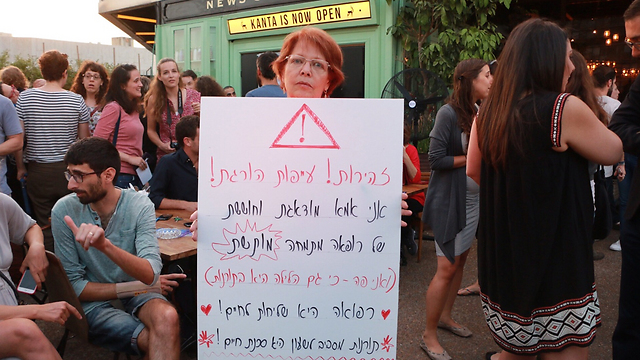 NEWS
KANTA IS NOW OPEN
!
זהירות! עיפות הורגת!
אני אמא מודאגת וחוששת
של רופאה מתמחה מותשת
(ואני פה - כי גם הלילה היא בתורנות)
רפואה היא שליחות לחיים!
תורנות מסביב לשעון היא סכנת חיים!